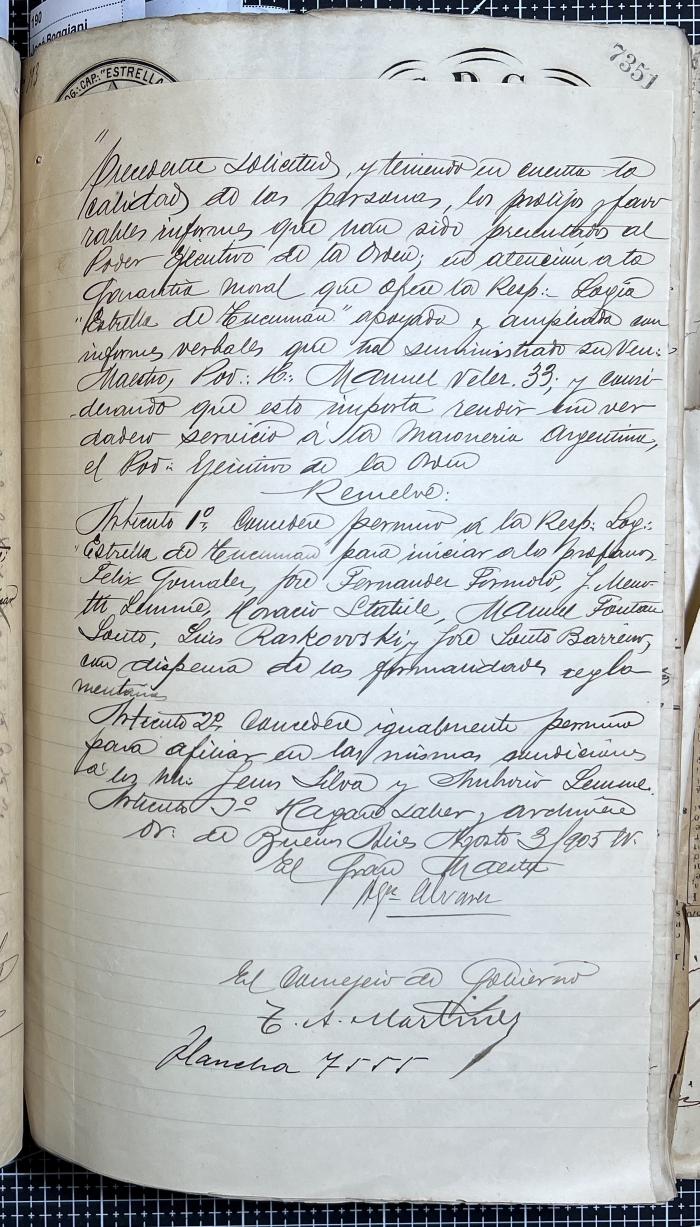 190
José Boggiani
OG.: CAP.: "ESTRELLA
7351
"
Precedente solicitud, y teniendo en cuenta la
calidad de las personas, los prolijos y favo
rables informes que han sido presentados al
Poder Ejecutivo de la Orden; en atención a la
Garantia moral que ofrece la Resp.: Logia
"Estrella de Tucuman" apoyada y ampliada con
informes verbales que ha suministrado su Ven.:
Maestro, Pod.: H.: Manuel Veler. 33; y consi-
-derando que esto importa rendir un ver
dadero servicio á la Masoneria Argentina,
el Pod.: Ejecutivo de la Orden
Resuelve:
Articulo 1º, Concedese permiso a la Resp.: Log.:
"Estrella de Tucuman" para iniciar a los profanos
Felix Gonzalez, José Fernandez Formoso, J.
Lemme, Horacio Statile, Manuel Foutan
Souto, Luis Raskovoski y José Souto Barreiro,
con dispensa de las formalidades regla
mentarias
Articulo 2º, Concedese igualmente permiso
para afiliar en las mismas condiciones
á los hh.: Jesus Silva y Lemme.
Articulo 3º Hagase saber y archivese
Or. de Buenos Aires Agosto 3/905 V.
El Gran Maestre
Agn Alvarez
El Consejero de Gobierno
E. A. Martinez
Plancha 7555